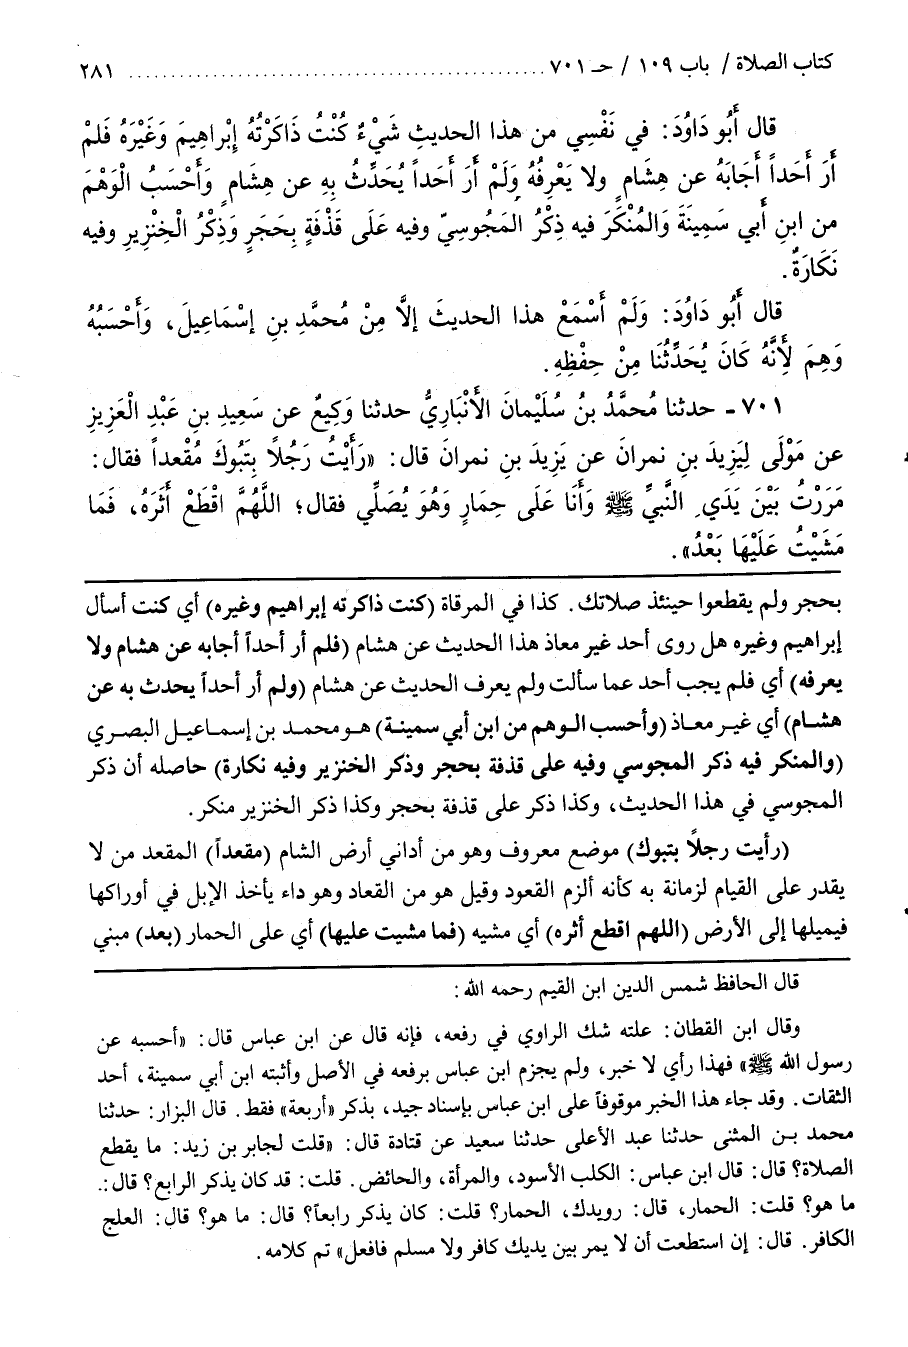 كتاب الصلاة / باب ١٠٩ / حـ ٧٠١ ........................................................ ٢٨١
قال أَبُو دَاوُدَ: في نَفْسِي من هذا الحديثِ شَيْءٌ كُنْتُ ذَاكَرْتُهُ إِبْراهِيمَ وَغَيْرَهُ فَلمْ
أَرَ أَحَداً أَجَابَهُ عن هِشَامٍ ولا يَعْرِفُهُ وَلَمْ أَرَ أَحَداً يُحَدِّثُ بِهِ عن هِشَامٍ وَأَحْسَبُ الْوَهْمَ
من ابنِ أَبي سَمِينَةَ وَالمُنْكَرَ فيه ذِكْرُ المَجُوسِيِّ وفيه عَلَى قَذْفَةٍ بِحَجَرٍ وَذِكْرُ الْخِنْزِيرِ وفيه
نَكَارَةٌ.
قال أَبُو دَاوُدَ: وَلَمْ أَسْمَعْ هذا الحديثَ إلَّا مِنْ مُحمَّدِ بنِ إسْمَاعِيلَ، وَأَحْسَبُهُ
وَهِمَ لأَنَّهُ كَانَ يُحَدِّثُنَا مِنْ حِفْظِهِ.
٧٠١ - حدثنا مُحمَّدُ بنُ سُلَيْمانَ الأَنْبَارِيُّ حدثنا وَكِيعٌ عن سَعِيدِ بنِ عَبْدِ الْعَزِيزِ
عن مَوْلَى لِيَزِيدَ بنِ نمرانَ عن يَزِيدَ بنِ نمرانَ قال: «رَأَيْتُ رَجُلاً بِتَبُوكَ مُقْعداً فقال:
مَرَرْتُ بَيْنَ يَدَيِ النَّبيِّ ﷺ وَأَنَا عَلَى حِمَارٍ وَهُوَ يُصَلِّي فقال؛ اللَّهُمَّ اقْطَعْ أَثَرَهُ، فَمَا
مَشَيْتُ عَلَيْهَا بَعْدُ».
بحجر ولم يقطعوا حينئذ صلاتك. كذا في المرقاة (كنت ذاكرته إبراهيم وغيره) أي كنت أسأل
إبراهيم وغيره هل روى أحد غير معاذ هذا الحديث عن هشام (فلم أر أحداً أجابه عن هشام ولا
يعرفه) أي فلم يجب أحد عما سألت ولم يعرف الحديث عن هشام (ولم أر أحداً يحدث به عن
هشام) أي غير معاذ (وأحسب الوهم من ابن أبي سمينة) هو محمد بن إسماعيل البصري
(والمنكر فيه ذكر المجوسي وفيه على قذفة بحجر وذكر الخنزير وفيه نكارة) حاصله أن ذكر
المجوسي في هذا الحديث، وكذا ذكر على قذفة بحجر وكذا ذكر الخنزير منكر.
(رأيت رجلاً بتبوك) موضع معروف وهو من أداني أرض الشام (مقعداً) المقعد من لا
يقدر على القيام لزمانة به كأنه ألزم القعود وقيل هو من القعاد وهو داء يأخذ الإبل في أوراكها
فيميلها إلى الأرض (اللهم اقطع أثره) أي مشيه (فما مشيت عليها) أي على الحمار (بعد) مبني
قال الحافظ شمس الدين ابن القيم رحمه الله:
وقال ابن القطان: علته شك الراوي في رفعه، فإنه قال عن ابن عباس قال: «أحسبه عن
رسول الله ﷺ» فهذا رأي لا خبر، ولم يجزم ابن عباس برفعه في الأصل وأثبته ابن أبي سمينة، أحد
الثقات. وقد جاء هذا الخبر موقوفاً على ابن عباس بإسناد جيد، بذكر «أربعة» فقط. قال البزار: حدثنا
محمد بن المثنى حدثنا عبد الأعلى حدثنا سعيد عن قتادة قال: «قلت لجابر بن زيد: ما يقطع
الصلاة؟ قال: قال ابن عباس: الكلب الأسود، والمرأة، والحائض. قلت: قد كان يذكر الرابع؟ قال:
ما هو؟ قلت: الحمار، قال: رويدك، الحمار؟ قلت: كان يذكر رابعاً؟ قال: ما هو؟ قال: العلج
الكافر. قال: إن استطعت أن لا يمر بين يديك كافر ولا مسلم فافعل» تم كلامه.